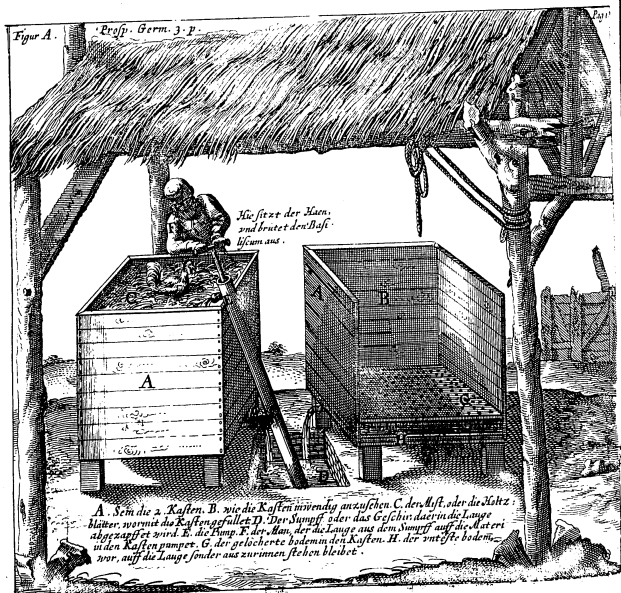 Figur A.
Prosp. Germ. 3. p.
Pag.
Hie sitzt der Haen,
vnd brutet den Basi-
liscum aus.
C
A
A
B
G
D
A. Sein die 2. Kasten. B. wie die Kasten inwendig anzusehen. C. der Mist, oder die Holtz:
blätter, wormit die Kasten gefullet D. Der Sumpff oder das Geschir: darin die Lauge
abgezapffet wird. E. die Pump. F. der Man, der die Lauge aus dem Sumpff auff die Materi
in den Kasten pumpet. G. der gelöcherte bodem in den Kasten. H. der vnteste bodem,
wor, auff die Lauge sonder aus zurinnen stehen bleibet.